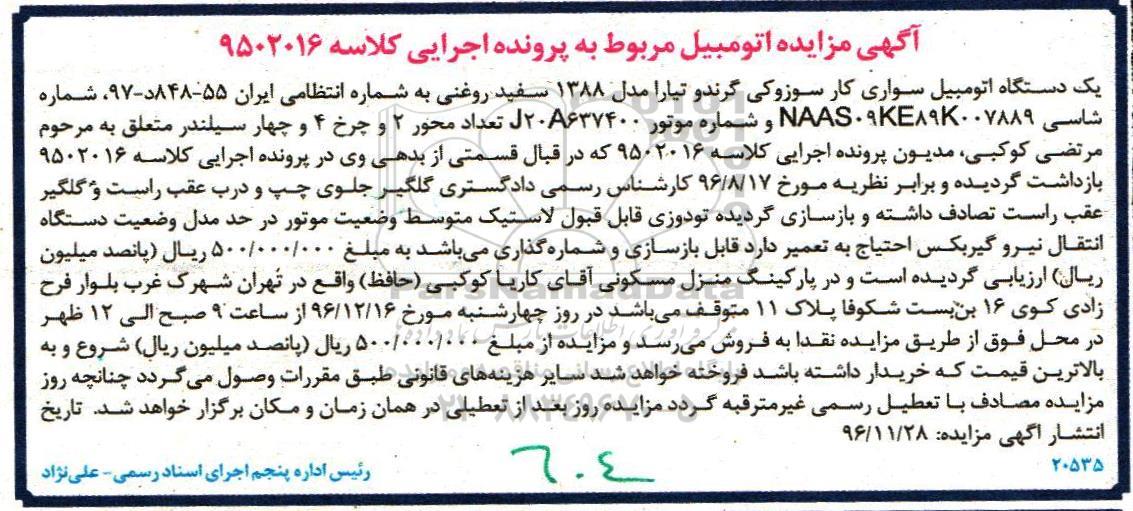 آگهی مزایده اتومبیل مربوط به پرونده اجرایی کلاسه ۹۵۰۲۰۱۶
یک دستگاه اتومبیل سواری کار سوزوکی گرندو تیارا مدل ۱۳۸۸ سفید روغنی به شماره انتظامی ایران ۵۵-۸۴۸د-۹۷، شماره
شاسی NAAS۰۹KE۸۹K۰۰۷۸۸۹ و شماره موتور J۲۰A۶۳۷۴۰۰ تعداد محور ۲ و چرخ ۴ و چهار سیلندر متعلق به مرحوم
مرتضی کوکبی، مدیون پرونده اجرایی کلاسه ۹۵۰۲۰۱۶ که در قبال قسمتی از بدهی وی در پرونده اجرایی کلاسه ۹۵۰۲۰۱۶
بازداشت گردیده و برابر نظریه مورخ ۹۶/۸/۱۷ کارشناس رسمی دادگستری گلگیر جلوی چپ و درب عقب راست و گلگیر
عقب راست تصادف داشته و بازسازی گردیده تودوزی قابل قبول لاستیک متوسط وضعیت موتور در حد مدل وضعیت دستگاه
انتقال نیرو گیربکس احتیاج به تعمیر دارد قابل بازسازی و شماره‌گذاری می‌باشد به مبلغ ۵۰۰/۰۰۰/۰۰۰ ریال (پانصد میلیون
ریال) ارزیابی گردیده است و در پارکینگ منزل مسکونی آقای کاریا کوکبی (حافظ) واقع در تهران شهرک غرب بلوار فرح
زادی کوی ۱۶ بن‌بست شکوفا پلاک ۱۱ متوقف می‌باشد در روز چهارشنبه مورخ ۹۶/۱۲/۱۶ از ساعت ۹ صبح الی ۱۲ ظهر
در محل فوق از طریق مزایده نقدا به فروش می‌رسد و مزایده از مبلغ ۵۰۰/۰۰۰/۰۰۰ ریال (پانصد میلیون ریال) شروع و به
بالاترین قیمت که خریدار داشته باشد فروخته خواهد شد سایر هزینه‌های قانونی طبق مقررات وصول می‌گردد چنانچه روز
مزایده مصادف با تعطیل رسمی غیرمترقبه گردد مزایده روز بعد از تعطیلی در همان زمان و مکان برگزار خواهد شد. تاریخ
انتشار اگهی مزایده: ۹۶/۱۱/۲۸
رئیس اداره پنجم اجرای اسناد رسمی- علی‌نژاد
۲۰۵۳۵
۶۰۴
ParsNamadData